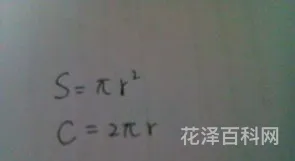 S=πr²
C=2πr
花泽百科网